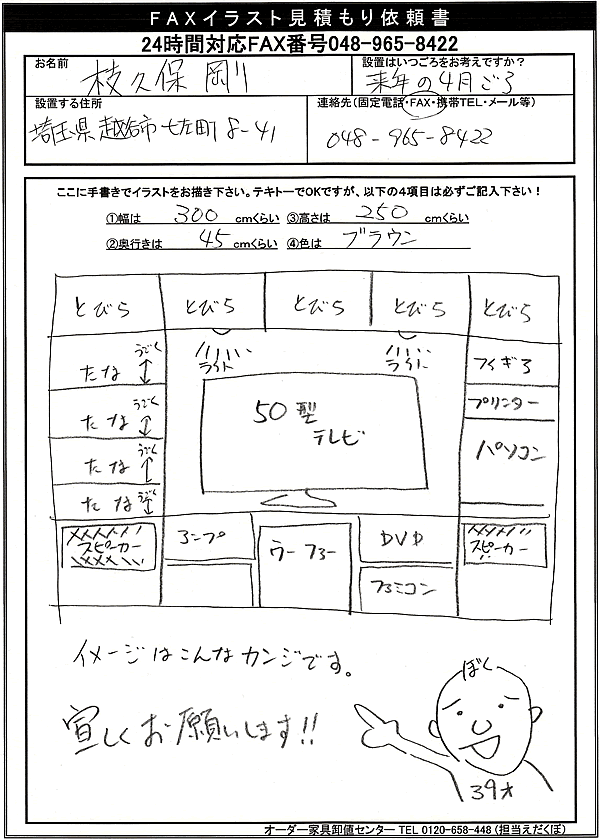 FAXイラスト見積もり依頼書
24時間対応FAX番号048-965-8422
お名前
枝久保 剛
設置はいつごろをお考えですか?
来年の4月ごろ
設置する住所
埼玉県越谷市七左町8-41
連絡先(固定電話・FAX・携帯TEL・メール等)
048-965-8422
ここに手書きでイラストをお描き下さい。テキトーでOKですが、以下の4項目は必ずご記入下さい!
①幅は 300 cmくらい ③高さは 250 cmくらい
②奥行きは 45 cmくらい ④色は ブラウン
とびら とびら とびら とびら とびら
たな うごく
たな うごく
たな うごく
たな うごく
ライト ライト
50型
テレビ
フィギュア
プリンター
パソコン
スピーカー
アンプ
ウーファー
DVD
ファミコン
スピーカー
イメージはこんなカンジです。
宜しくお願いします!!
ぼく
39才
オーダー家具卸値センター TEL 0120-658-448 (担当えだくぼ)